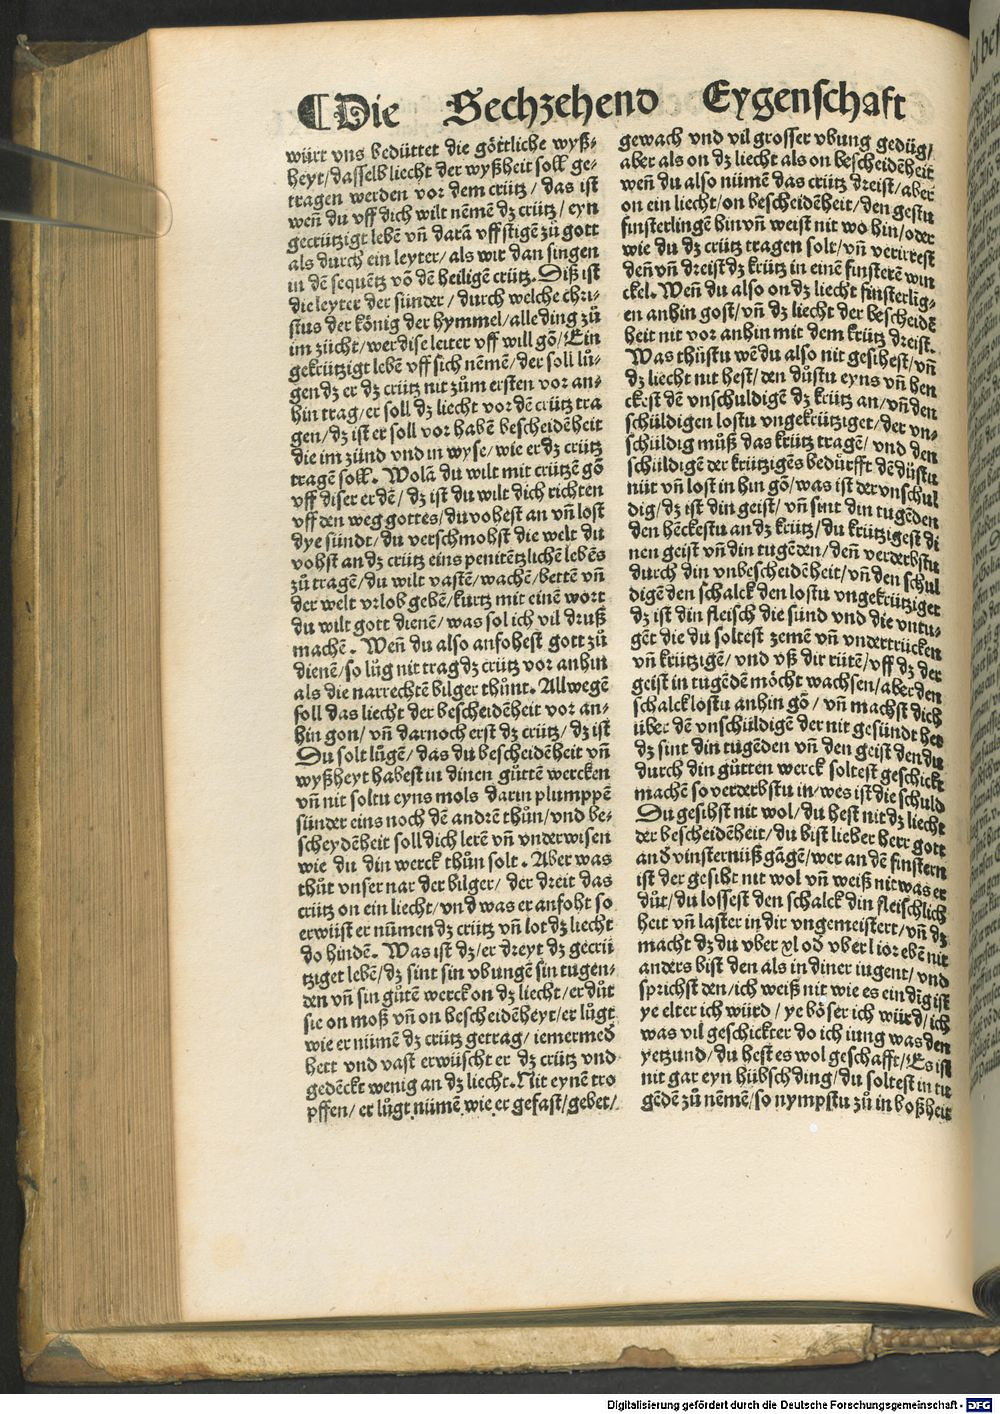 ¶Die Sechzehend Eygenschaft
würt vns bedüttet die göttliche wyß-
heyt/dasselb liecht der wyßheit soll ge-
tragen werden vor dem crütz/ das ist
weñ du vff dich wilt nēmē dʒ crütz/ eyn
gecrützigt lebē vñ darā vff stigē zů gott
als durch ein leyter/als wir dan singen
in dē sequētz vō dē heiligē crütz. Diß ist
die leyter der sünder/ durch welche chri-
stus der kōnig der hymmel/alle ding zů
im zücht/wer dise leiter vff will gō/Ein
gekrützigt lebē vff sich nēmē/der soll lů-
gen dʒ er dʒ crütz nit zům ersten vor an-
hin trag/er soll dʒ liecht vor dē crütz tra
gen/dʒ ist er soll vor habē bescheidēheit
die im zünd vnd in wyse/wie er dʒ crütz
tragē soll. Wolā du wilt mit crützē gō
vff diser er dē/ dʒ ist du wilt dich richten
vff den weg gottes/du vohest an vñ lost
dye sündt/du verschmohst die welt du
vohst an dʒ crütz eins penitētzlichē lebēs
zů tragē/du wilt vastē/wachē/bettē vñ
der welt vrlob gebē/kurtz mit einē wort
du wilt gott dienē/was sol ich vil druß
machē. Weñ du also anfohest gott zů
dienē/so lůg nit trag dʒ crütz vor anhin
als die narrechtē bilger thůnt. Allwegē
soll das liecht der bescheidēheit vor an-
hin gon/vñ darnoch erst dʒ crütz/dʒ ist
Du solt lůgē/das du bescheidēheit vñ
wyßheyt habest in dinen gůttē wercken
vñ nit soltu eyns mols darin plumppē
sünder eins noch dē andrē thůn/vnd be-
scheydēheit soll dich lerē vñ vnderwisen
wie du din werck thůn solt. Aber was
thůt vnser nar der bilger/ der dreit das
crütz on ein liecht/vnd was er anfoht so
erwüst er nümen dʒ crütz vñ lot dʒ liecht
do hindē. Was ist dʒ/er dreyt dʒ gecrü
tziget lebē/dʒ sint sin vbungē sin tugen-
den vñ sin gůtē werck on dʒ liecht/er důt
sie on moß vñ on bescheidēheyt/er lůgt
wie er nümē dʒ crütz getrag/iemermed
hert vnd vast erwüscht er dʒ crütz vnd
gedēckt wenig an dʒ liecht. Nit eynē tro
pffen/er lůgt nümē wie er gefast/gebet/
gewach vnd vil grosser vbung gedüg/
aber als on dʒ liecht als on bescheidēheit
weñ du also nümē das crütz dreist/aber
on ein liecht/on bescheidēheit/den gestu
finsterlingē hin vñ weist nit wo hin/oder
wie du dʒ crütz tragen solt/vñ verirrest
deñ vñ dreist dʒ krütz in einē finsterē win
ckel. Weñ du also on dʒ liecht finsterlig-
en anhin gost/vñ dʒ liecht der bescheidē
heit nit vor anhin mit dem krütz dreist.
Was thůstu wē du also nit gesihest/vñ
dʒ liecht nit hest/den důstu eyns vñ hen
ckest dē vnschuldigē dʒ krütz an/vñ den
schüldigen lostu vngekrütziget/der vn-
schüldig můß das krütz tragē/ vnd den
schüldigē der krützigēs bedürfft dē düstu
nüt vñ lost in hin gō/was ist der vnschul
dig/dʒ ist din geist/ vñ sint din tugēden
den hēckestu an dʒ krütz/du krützigest di
nen geist vñ din tugēden/deñ verderbstu
durch din vnbescheidēheit/vñ den schul
digē den schalck den lostu vngekrütziget
dʒ ist din fleisch die sünd vnd die vntu-
gēt die du soltest zemē vñ vndertrücken
vñ krützigē/ vnd vß dir rütē/vff dʒ der
geist in tugēdē möcht wachsen/aber den
schalck lostu anhin gō/ vñ machst dich
über dē vnschüldigē der nit gesündt het
dʒ sint din tugēden vñ den geist den du
durch din gůtten werck soltest geschickt
machē so verderbstu in/wes ist die schuld
Du gesihst nit wol/du hest nit dʒ liecht
der bescheidēheit/du bist lieber herr gott
and vinsternüß gāgē/wer an dē finstern
ist der gesiht nit wol vñ weiß nit was er
důt/du lossest den schalck din fleischlich
heit vñ laster in dir vngemeistert/vñ dʒ
macht dʒ du vber xl od vber l ior ebē nit
anders bist den als in diner iugent/ vnd
sprichst den/ich weiß nit wie es ein dig ist
ye elter ich würd/ ye böser ich würd/ich
was vil geschickter do ich iung was den
yetzund/du hest es wol geschafft/Es ist
nit gar eyn hübsch ding/du soltest in tu
gēdē zů nēmē/so nympstu zů in boßheit
Digitalisierung gefördert durch die Deutsche Forschungsgemeinschaft - DFG